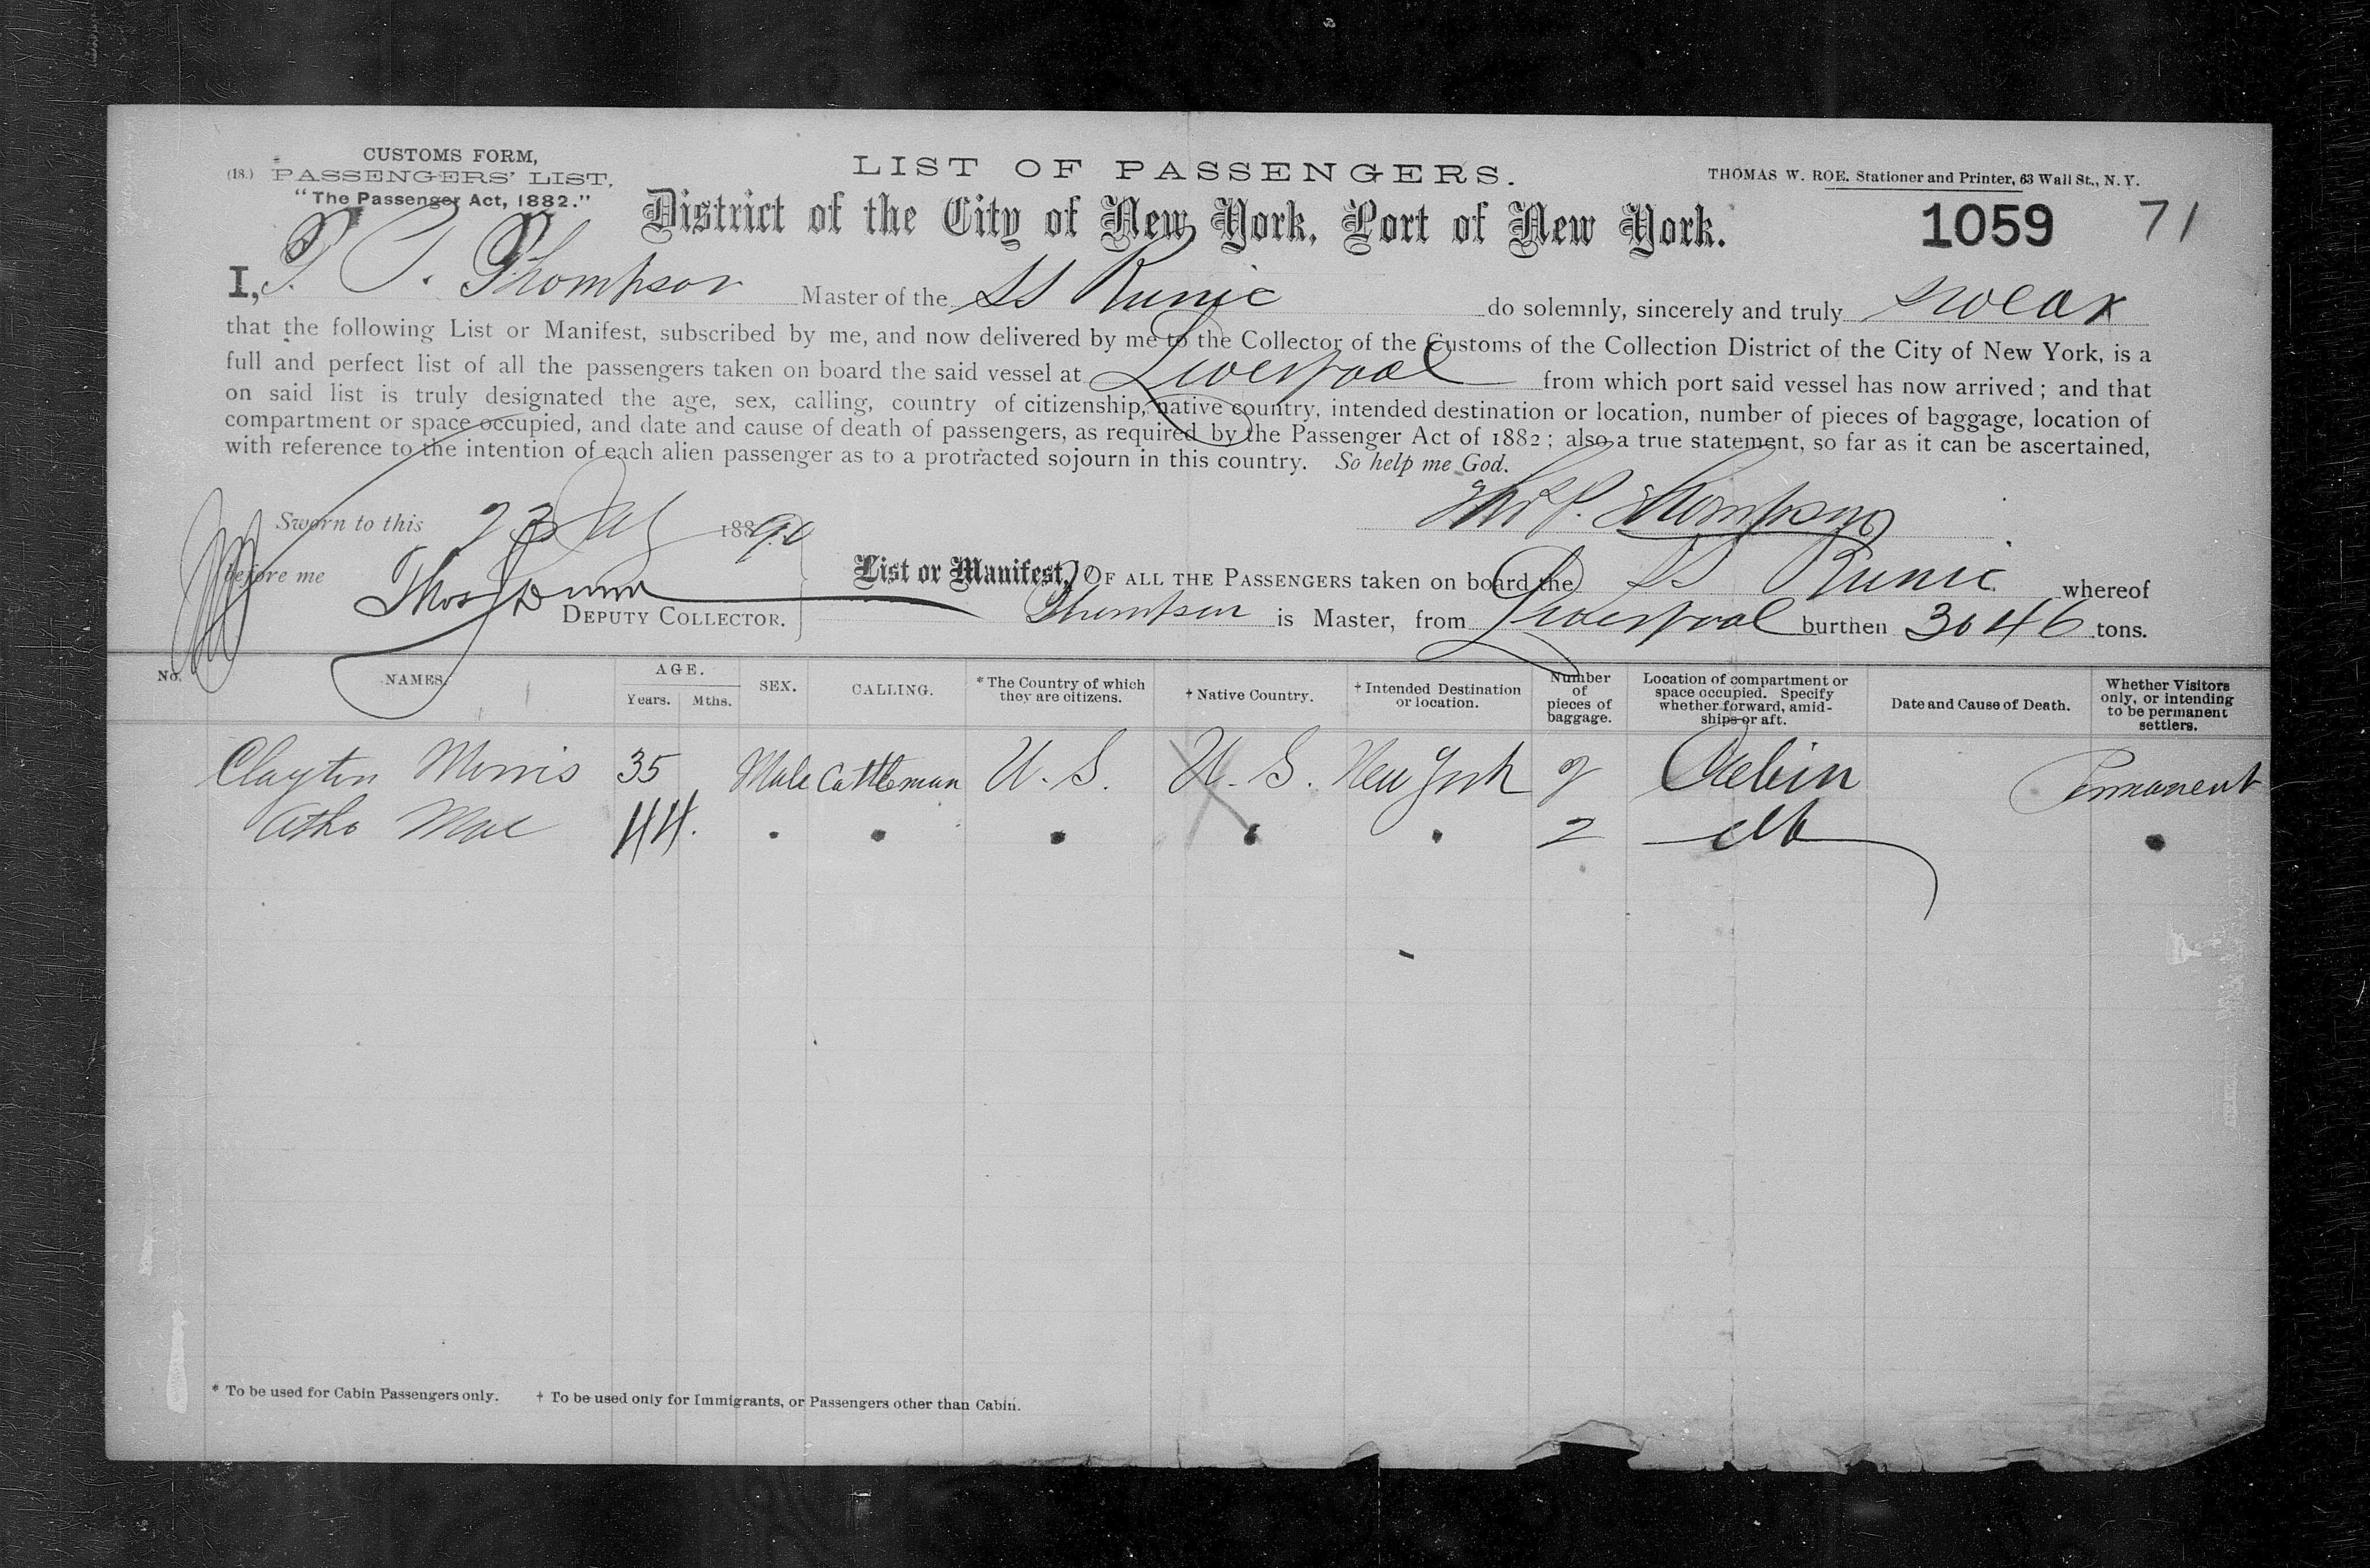 CUSTOMS FORM,
(18.) PASSENGERS' LIST,
"The Passenger Act, 1882."
LIST OF PASSENGERS.
THOMAS W. ROE. Stationer and Printer, 63 Wall St., N. Y.
District of the City of New York, Port of New York.
1059 71
I, P. Thompson Master of the SS Runic do solemnly, sincerely and truly swear
that the following List or Manifest, subscribed by me, and now delivered by me to the Collector of the Customs of the Collection District of the City of New York, is a
full and perfect list of all the passengers taken on board the said vessel at Liverpool from which port said vessel has now arrived; and that
on said list is truly designated the age, sex, calling, country of citizenship, native country, intended destination or location, number of pieces of baggage, location of
compartment or space occupied, and date and cause of death of passengers, as required by the Passenger Act of 1882; also a true statement, so far as it can be ascertained,
with reference to the intention of each alien passenger as to a protracted sojourn in this country. So help me God.
Thompson
Sworn to this 23 188 90
before me Thos Dunn
DEPUTY COLLECTOR.
List or Manifest, OF ALL THE PASSENGERS taken on board the SS Runic whereof
Thompson is Master, from Liverpool burthen 3046 tons.
No. NAMES. AGE. Years. Mths. SEX. CALLING. * The Country of which they are citizens. † Native Country. † Intended Destination or location. Number of pieces of baggage. Location of compartment or space occupied. Specify whether forward, amidships or aft. Date and Cause of Death. Whether Visitors only, or intending to be permanent settlers.
Clayton Morris 35 Male Cattleman U.S. U.S. New York 2 Cabin Permanent
44. " " " " " 2 "
* To be used for Cabin Passengers only. † To be used only for Immigrants, or Passengers other than Cabin.